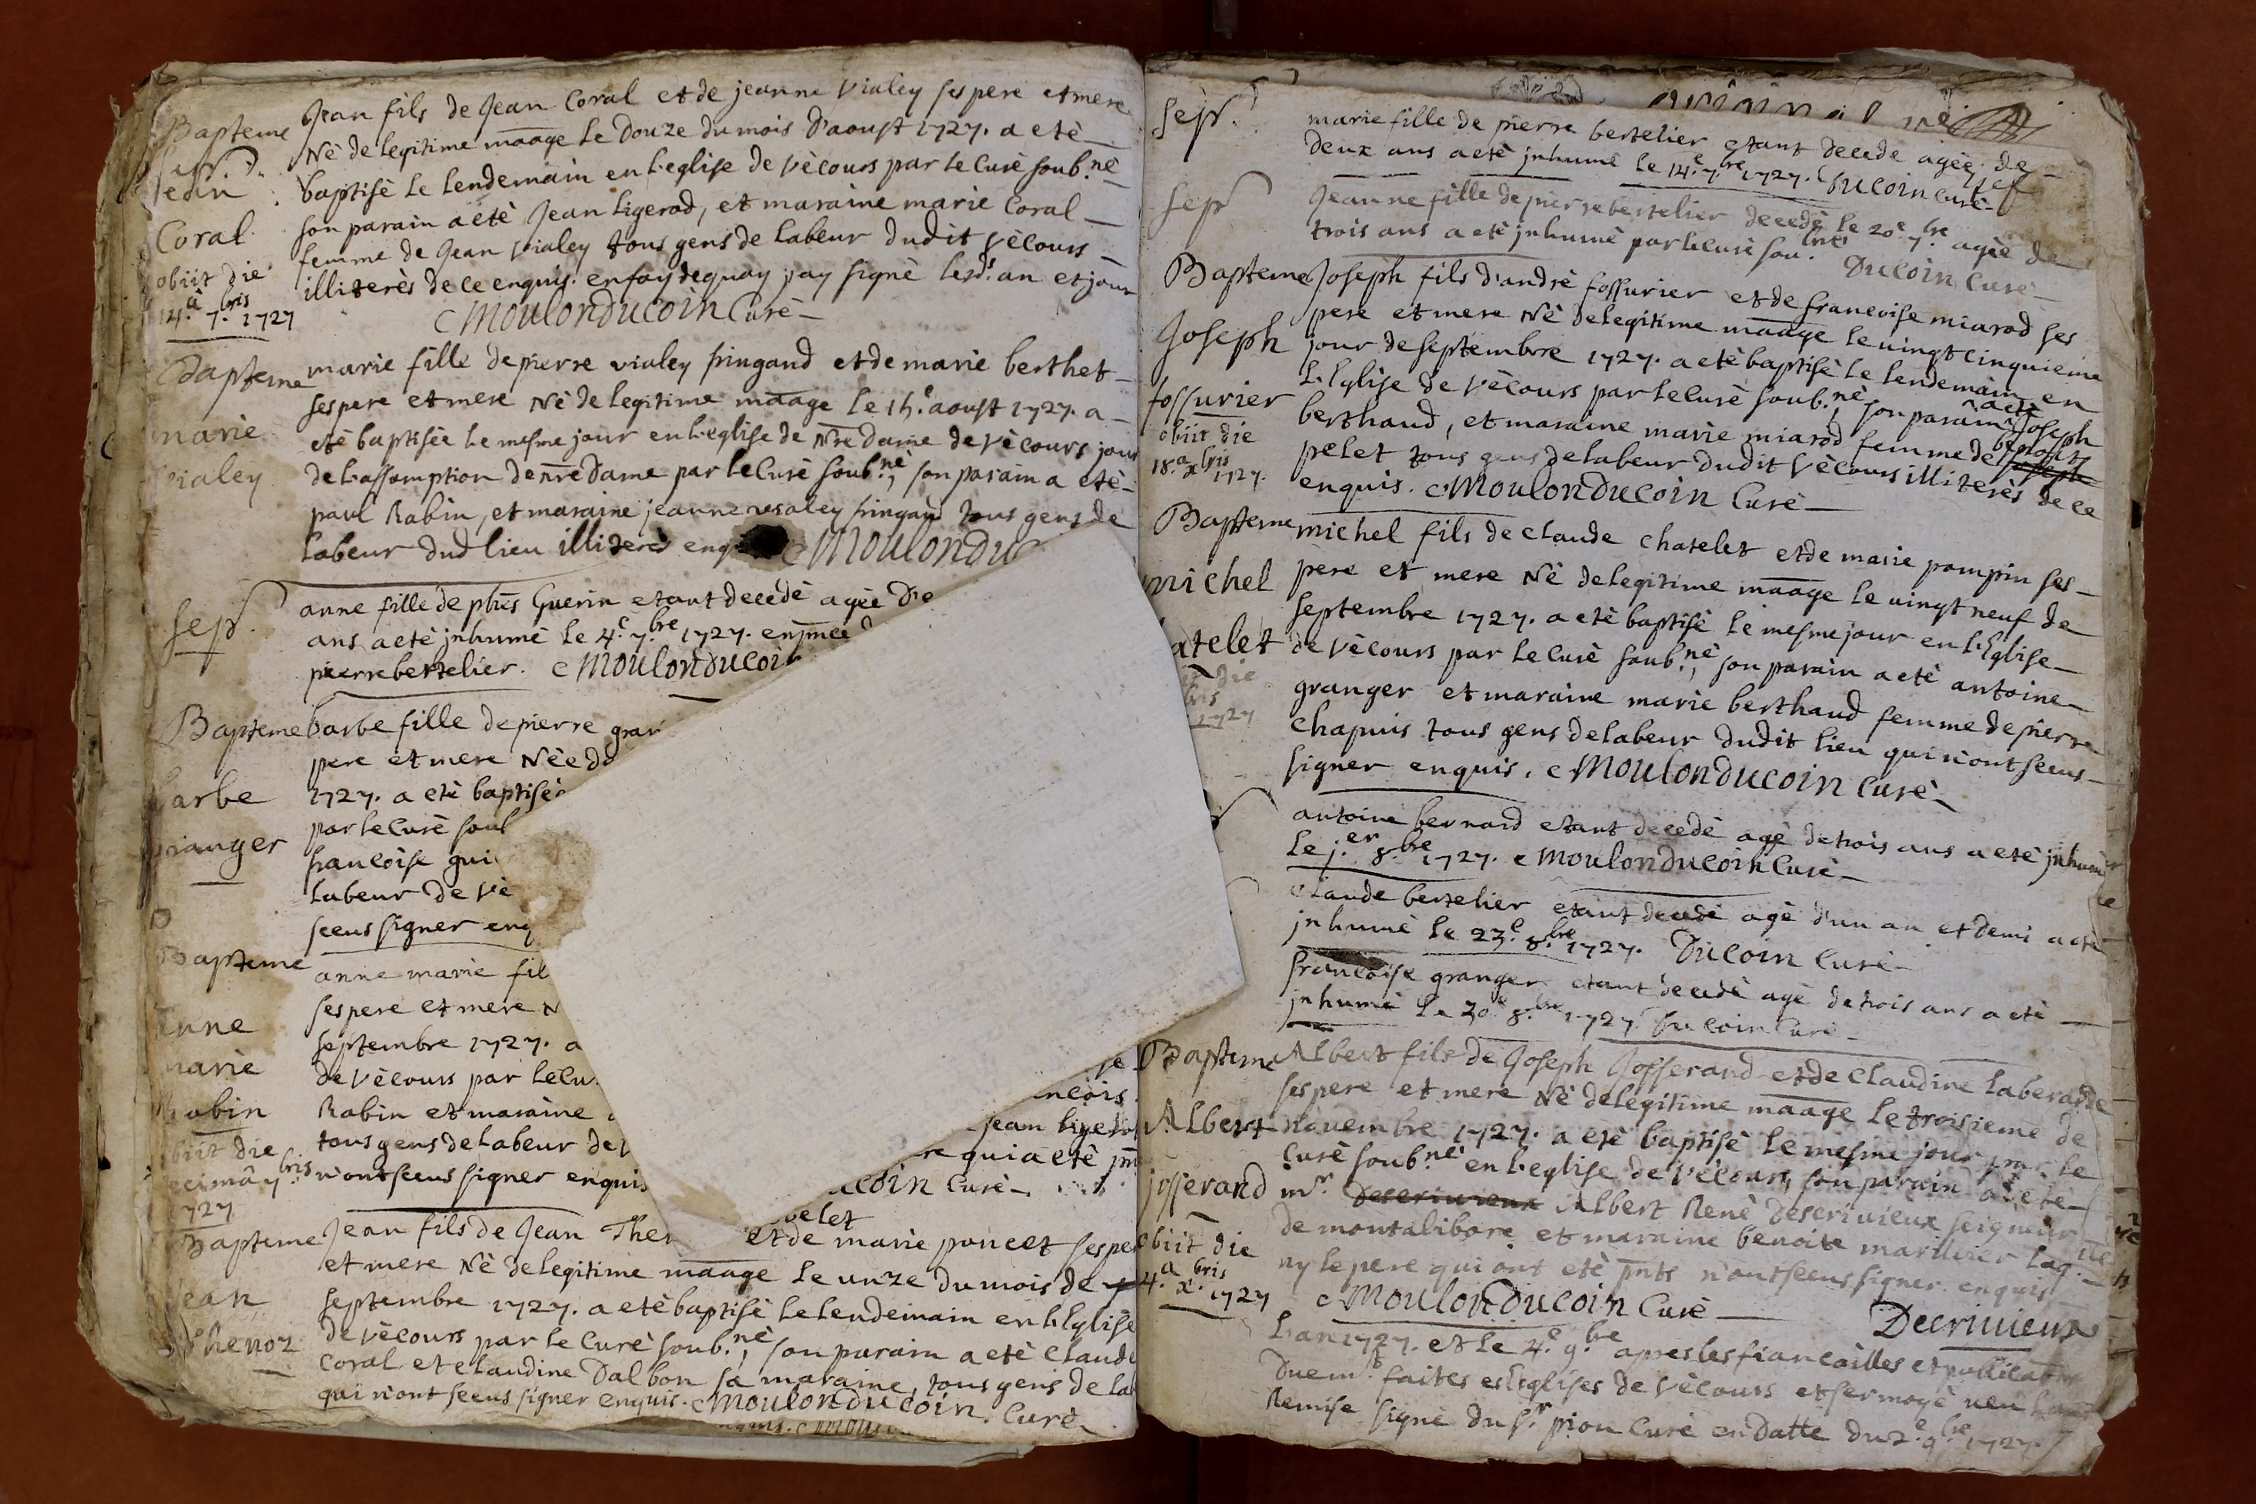 Bapteme
Jean
Coral
obiit die
14.ª 7.bris 1727
Jean fils de Jean Coral et de jeanne Vialey ses pere et mere
Nè de legitime maage le Douze du mois D'aoust 1727. a etè
baptisè le lendemain en L'eglise de Vècours par le Curè soub.nè
son parain a etè Jean ligerod, et maraine marie Coral
femme de Jean Vialey tous gens de labeur dudit Vècours
illiterès de ce enquis. en foy dequoy j'ay signè lesd.s an et jour
Moulon Ducoin Curè
Bapteme
marie
Vialey
marie fille de pierre vialey fringand et de marie berthet
ses pere et mere Nè de legitime maage le 15.e aoust 1727. a
etè baptisèe le mesme jour en L'eglise de Nre Dame de Vècours jour
de L'assomption de nre Dame par le Curè soub.nè, son parain a etè
paul Rabin, et maraine jeanne vialey fringand tous gens de
labeur dud lieu illiterès enq
Moulon Du
sep.
anne fille de phis Guerin etant decedè agèe De
ans a etè jnhumè le 4.e 7.bre 1727. en
pierre bertelier. Moulon Ducoin
Bapteme
barbe
granger
barbe fille de pierre gran
pere et mere Nèe d
1727. a etè baptisèe
par le Curè soub
francoise gui
labeur de Vè
sceus signer enq
Bapteme
anne
marie
Rabin
obiit die
decimâ 7.bris
1727
anne marie fil
ses pere et mere N
septembre 1727. a
de Vècours par le Cu
Rabin et maraine
tous gens de labeur de V
n'ont sceus signer enquis
se
ncois
jean ligerod
re qui a etè
ucoin Curè
Bapteme
Jean
Thenoz
velet
Jean fils de Jean Then et de marie poncet ses pere
et mere Nè de legitime maage le unze du mois de
septembre 1727. a etè baptisè le lendemain en L'Eglise
de Vècours par le Curè soub.nè, son parain a etè Claude
Coral et Claudine Dalbon sa maraine, tous gens de la
qui n'ont sceus signer enquis. Moulon Ducoin. Curè
sep.
marie fille de pierre bertelier etant decede agèe de
deux ans a etè jnhumè le 14.e 7.bre 1727. Ducoin Curè
sep
Jeanne fille de pierre bertelier decedè le 20e 7.bre agèe de
trois ans a etè jnhumè par le Curè sou.bnè Ducoin Curè
Bapteme
Joseph
fossurier
obiit die
18.ª x.bris
1727.
Joseph fils d'andrè fossurier et de francoise miarod ses
pere et mere Nè de legitime maage le vingt cinquieme
jour de septembre 1727. a etè baptisè le lendemain en
L'Eglise de Vècours par le Curè soub.nè, son parain a etè Joseph
berthaud, et maraine marie miarod femme de benoist
pelet tous gens de labeur dudit Vècours illiterès de ce
enquis. Moulon Ducoin Curè
Bapteme
michel
atelet
die
bris
1727
michel fils de Claude Chatelet et de marie pompin ses
pere et mere Nè de legitime maage le vingt neuf de
septembre 1727. a etè baptisè le mesme jour en L'Eglise
de Vècours par le Curè soub.nè, son parain a etè antoine
granger et maraine marie berthaud femme de pierre
Chapuis tous gens de labeur dudit lieu qui n'ont sceus
signer enquis. Moulon Ducoin Curè
antoine bernard etant decedè agè de trois ans a etè jnhumè
le j.er 8.bre 1727. Moulon Ducoin Curè
Claude bertelier etant decedè agè d'un an et demi a etè
jnhumè le 23.e 8.bre 1727. Ducoin Curè
francoise granger etant decedè agè de trois ans a etè
jnhumè le 30e 8.bre 1727 Ducoin Curè
Bapteme
Albert
josserand
obiit die
4.ª x.bris
1727
Albert fils de Joseph Josserand et de Claudine laberarde
ses pere et mere Nè de legitime maage le troisieme de
Novembre 1727. a etè baptisè le mesme jour par le
Curè soub.nè en L'eglise de Vècours, son parain a etè
mr. Albert Renè Descrivieux seigneur
de montalibore et maraine benoite marivier
ny le pere qui ont etè pnts n'ont sceus signer enquis
Moulon Ducoin Curè
Decrivieux
L'an 1727. et le 4.e 9.bre apres les fiancailles et publications
Duem.t faites es Eglises de Vècours et sermoyè veu la
Remise signè du s.r pion Curè en Datte du 2.e 9.bre 1727.